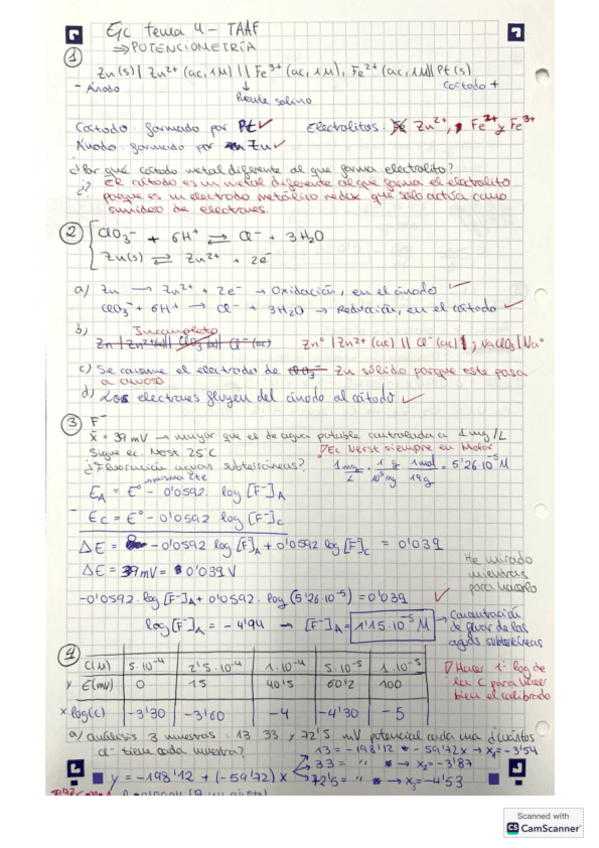 Ejc tema 4 - TAAF
⇒ POTENCIOMETRÍA
① Zn(s) | Zn²⁺ (ac, 1M) || Fe³⁺ (ac, 1M), Fe²⁺ (ac, 1M) | Pt (s)
- Ánodo Puente salino Cátodo +
Cátodo: formado por Pt ✓ Electrolitos: Zn²⁺, Fe²⁺ y Fe³⁺
Ánodo: formado por Zn ✓
¿Por qué cátodo metal diferente al que forma electrolito?
¿? El cátodo es un metal diferente al que forma el electrolito
porque es un electrodo metálico redox que solo actúa como
sumidero de electrones.
② ClO₃⁻ + 6H⁺ ⇌ Cl⁻ + 3H₂O
Zn(s) ⇌ Zn²⁺ + 2e⁻
a) Zn → Zn²⁺ + 2e⁻ → Oxidación, en el ánodo ✓
ClO₃⁻ + 6H⁺ → Cl⁻ + 3H₂O → Reducción, en el cátodo ✓
b) Incompleto
Zn | Zn²⁺(ac) || ClO₃⁻(ac) | Cl⁻ (ac) Zn° | Zn²⁺ (ac) || Cl⁻ (ac) | , NaClO₃ | Na°
c) Se consume el electrodo de ClO₃⁻ Zn sólido porque este pasa
a acuoso
d) Los electrones fluyen del ánodo al cátodo ✓
③ F⁻
x̄ = 39 mV → mayor que el de agua potable controlada a 1 mg/L
Sigue ec. Nerst 25°C El Nerst siempre en Molar
¿Fluoración aguas subterráneas? 1 mg/L · 1 g/10³ mg · 1 mol/19 g = 5'26·10⁻⁵ M
misma cte
E_A = E° - 0'0592 log [F⁻]_A
- E_C = E° - 0'0592 log [F⁻]_C
ΔE = - 0'0592 log [F⁻]_A + 0'0592 log [F⁻]_C = 0'039
ΔE = 39 mV = 0'039 V
He mirado
mientras
para hacerlo
-0'0592 · log [F⁻]_A + 0'0592 · log (5'26·10⁻⁵) = 0'039 ✓
log [F⁻]_A = - 4'94 → [F⁻]_A = 1'15·10⁻⁵ M → Concentración
de fluor de las
aguas subterráneas
④ C(M) | 5·10⁻⁴ | 2'5·10⁻⁴ | 1·10⁻⁴ | 5·10⁻⁵ | 1·10⁻⁵
y E(mV) | 0 | 15 | 40'5 | 60'2 | 100
x log(C) | -3'30 | -3'60 | -4 | -4'30 | -5
Hacer 1º log de
la C para hacer
bien el calibrado
a) análisis 3 muestras: 13 33 y 72'5 mV potencial cada una ¿cuántos
Cl⁻ tiene cada muestra? 13 = -198'12 - 59'72x → x₁ = -3'54
33 = " " → x₂ = -3'87
y = -198'12 + (-59'72) x 72'5 = " " → x₃ = -4'53
Scanned with
CS CamScanner